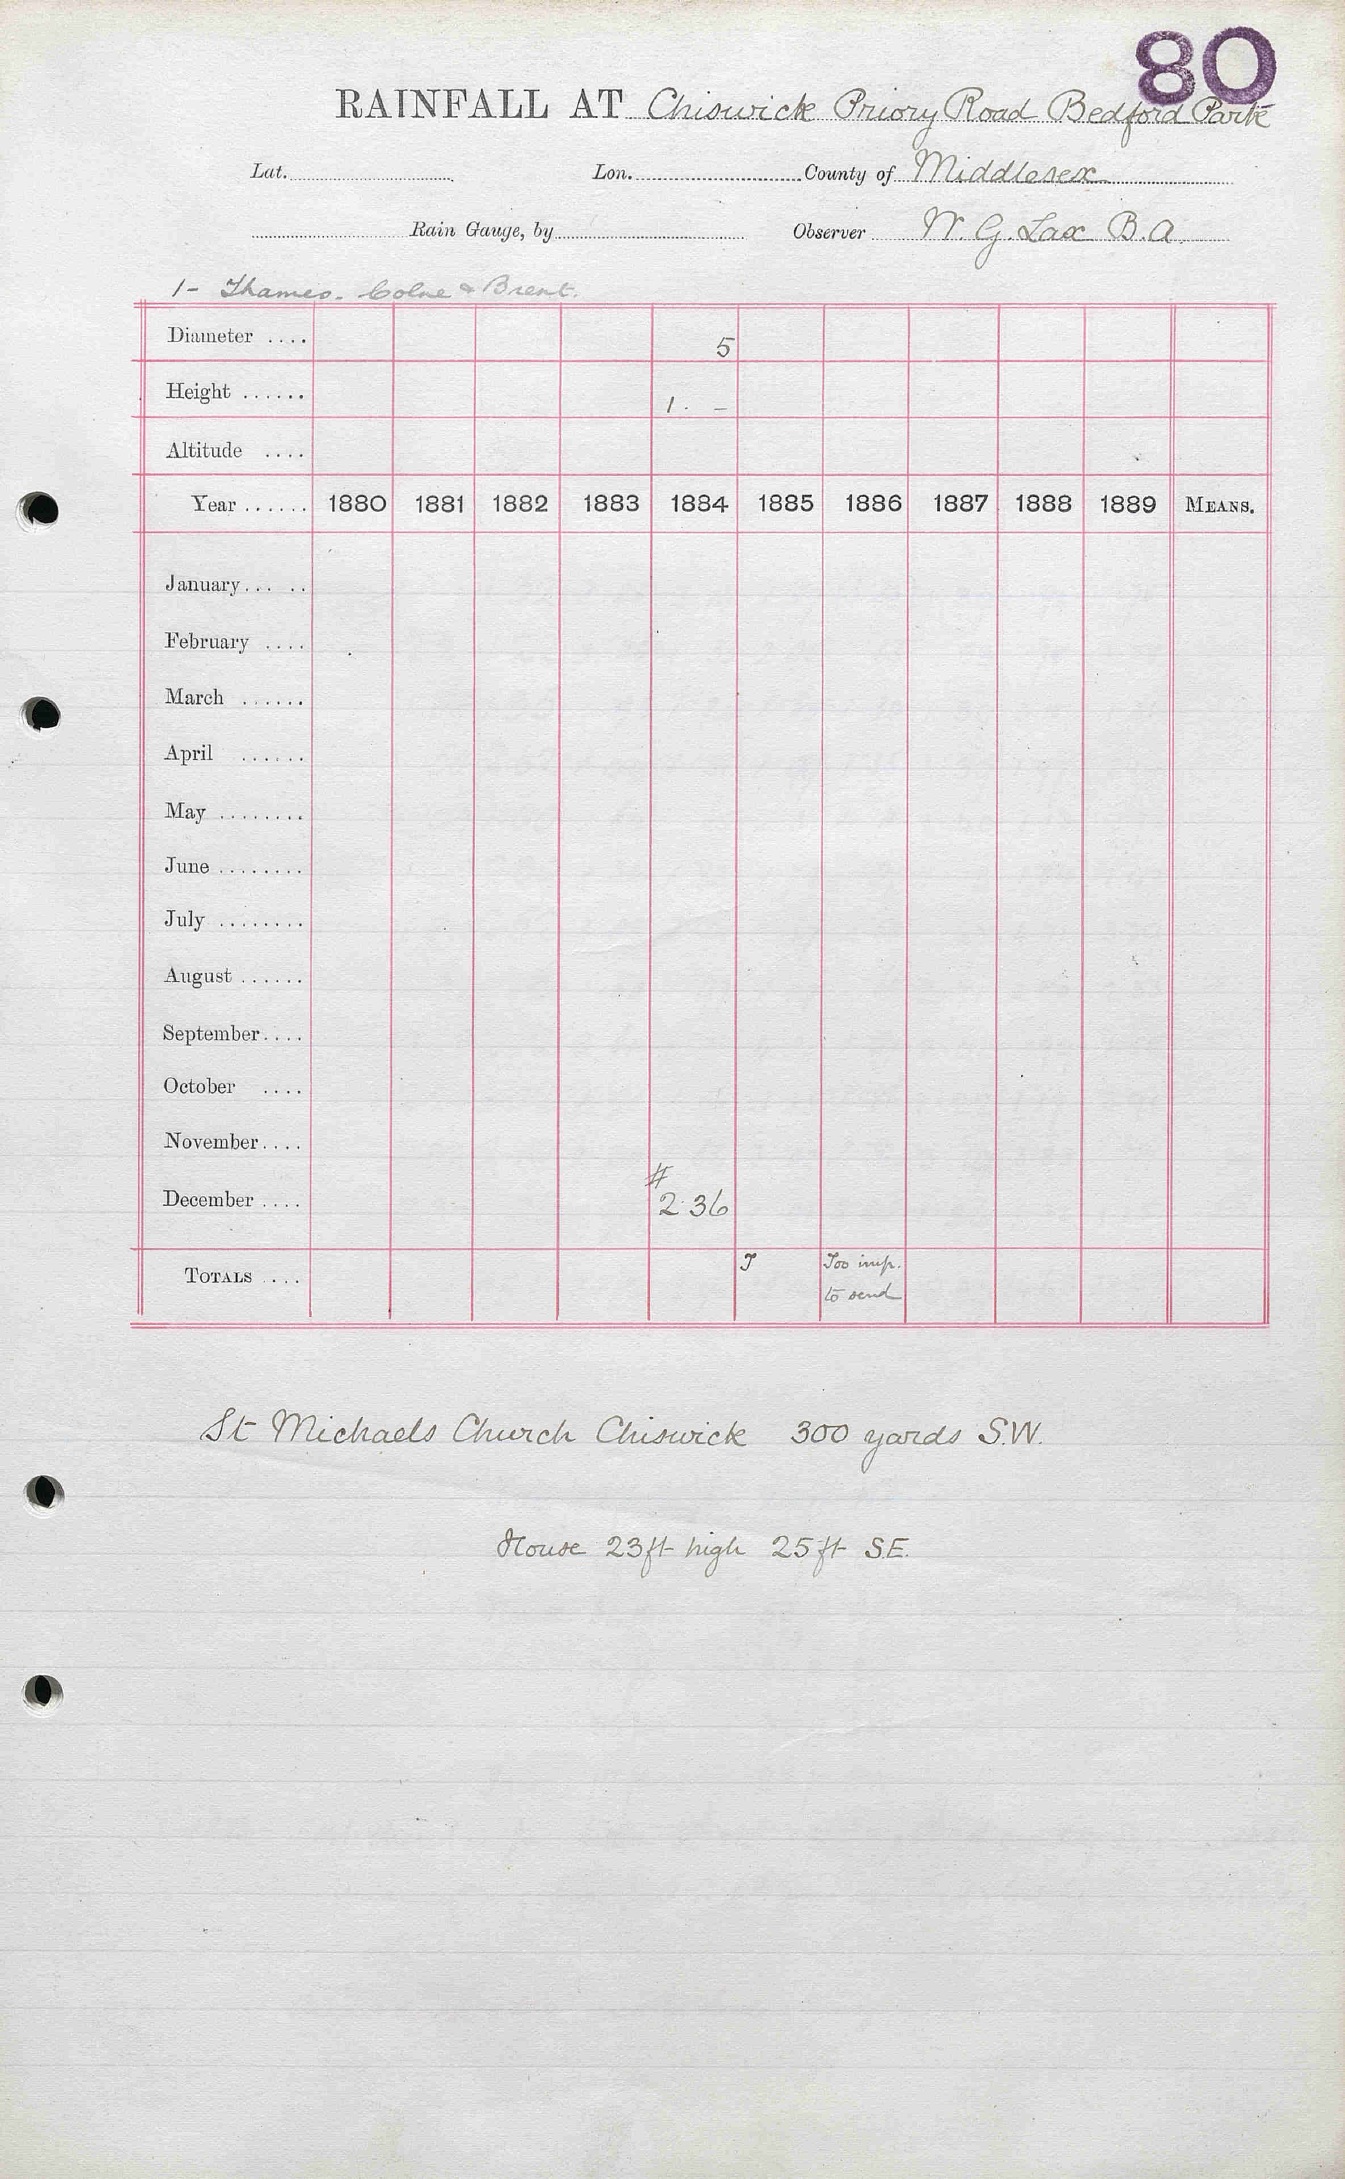 80
RAINFALL AT Chiswick Priory Road Bedford Park
Lat. Lon. County of Middlesex
Rain Gauge, by Observer W. G. Lax B.A.
1 - Thames. Colne & Brent.
Diameter .... 5
Height ...... 1. -
Altitude ....
Year ...... 1880 1881 1882 1883 1884 1885 1886 1887 1888 1889 MEANS.
January... ..
February ....
March ......
April ......
May ........
June ........
July ........
August ......
September ....
October ....
November ....
#
December .... 2.36
TOTALS .... T Too imp.
to send
St Michaels Church Chiswick 300 yards S.W.
House 23ft high 25ft S.E.